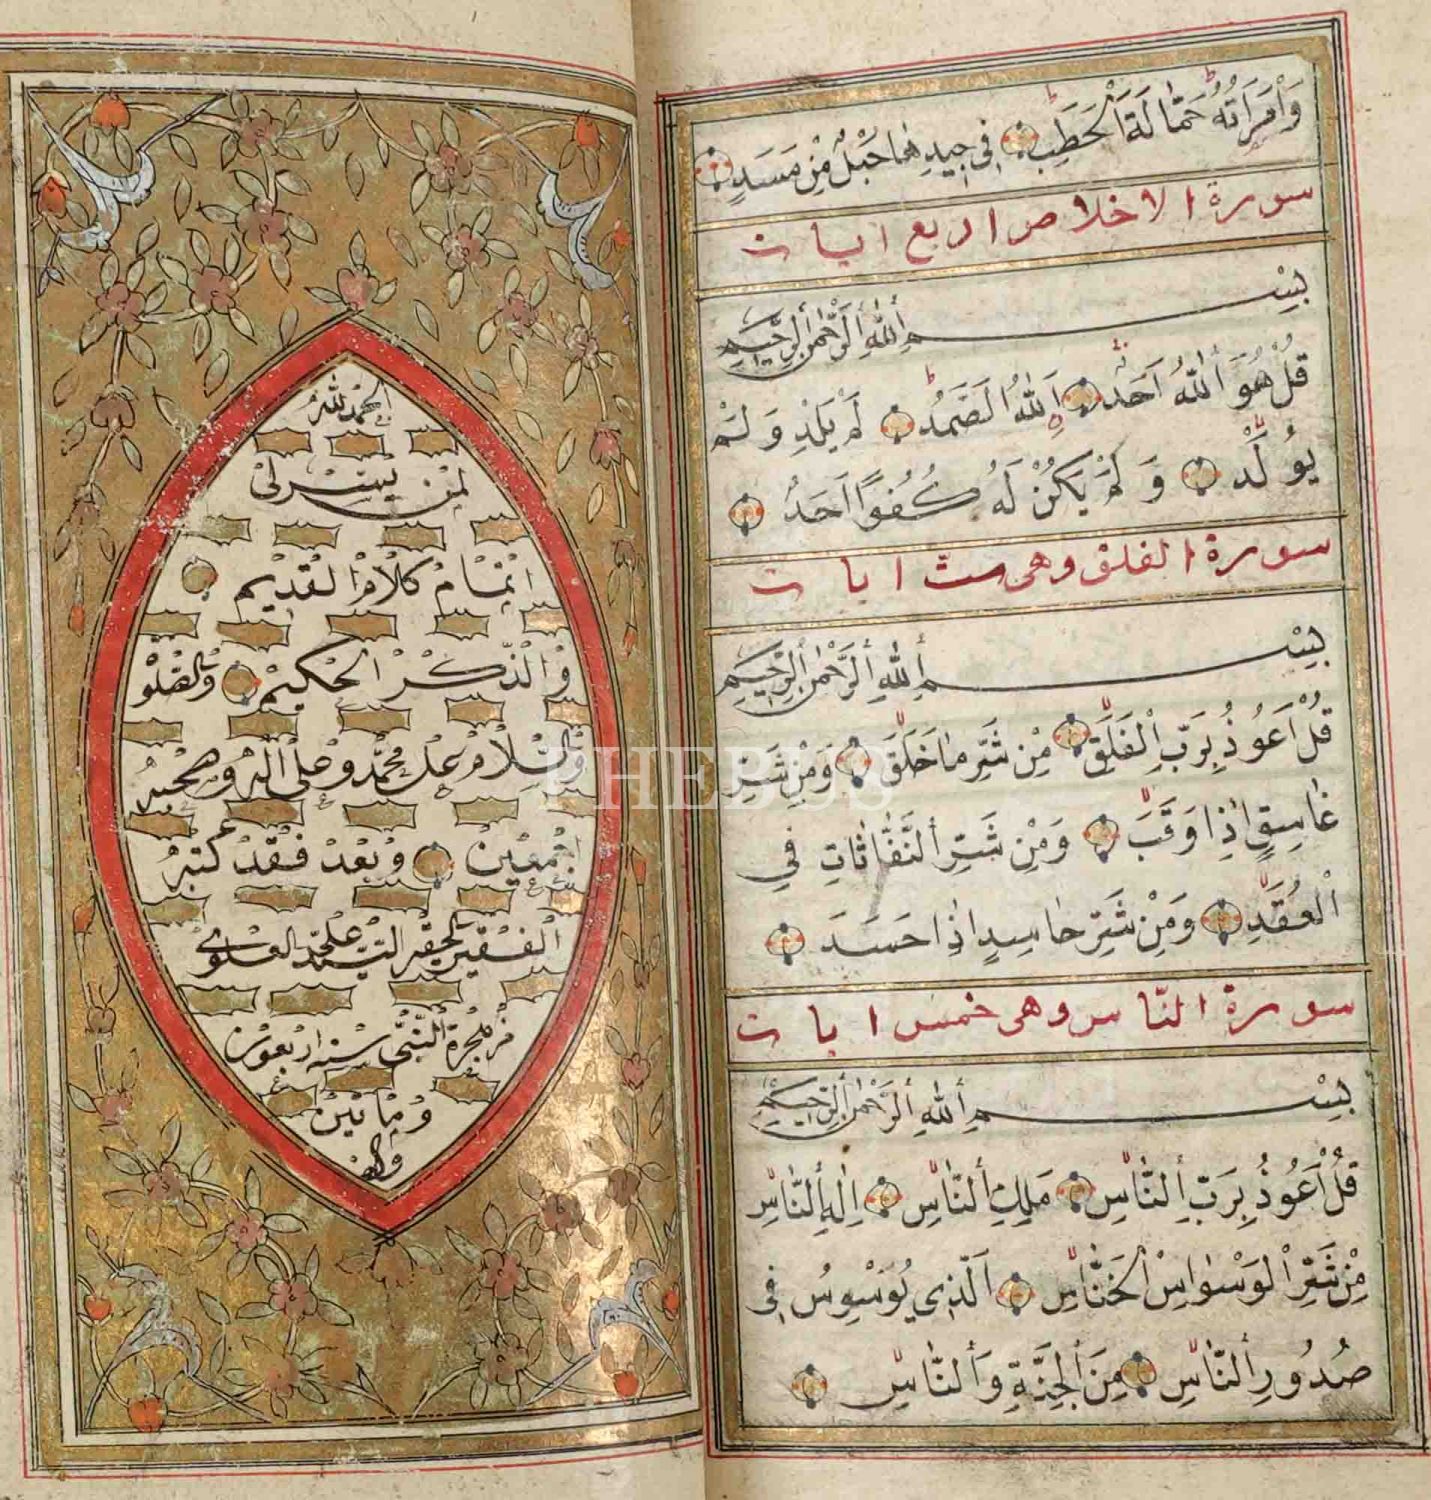 وَامْرَاَتُهُ حَمَّالَةَ الْحَطَبِ فِي جِيدِهَا حَبْلٌ مِنْ مَسَدٍ
سورة الاخلاص اربع ايات
بِسْمِ اللهِ الرَّحْمٰنِ الرَّحِيمِ
قُلْ هُوَ اللهُ اَحَدٌ اَللهُ الصَّمَدُ لَمْ يَلِدْ وَلَمْ
يُولَدْ وَلَمْ يَكُنْ لَهُ كُفُوًا اَحَدٌ
سورة الفلق وهى ست ايات
بِسْمِ اللهِ الرَّحْمٰنِ الرَّحِيمِ
قُلْ اَعُوذُ بِرَبِّ الْفَلَقِ مِنْ شَرِّ مَا خَلَقَ وَمِنْ شَرِّ
غَاسِقٍ اِذَا وَقَبَ وَمِنْ شَرِّ النَّفَّاثَاتِ فِي
الْعُقَدِ وَمِنْ شَرِّ حَاسِدٍ اِذَا حَسَدَ
سورة النّاس وهى خمس ايات
بِسْمِ اللهِ الرَّحْمٰنِ الرَّحِيمِ
قُلْ اَعُوذُ بِرَبِّ النَّاسِ مَلِكِ النَّاسِ اِلٰهِ النَّاسِ
مِنْ شَرِّ الْوَسْوَاسِ الْخَنَّاسِ اَلَّذِي يُوَسْوِسُ فِي
صُدُورِ النَّاسِ مِنَ الْجِنَّةِ وَالنَّاسِ
الحمد لله
لمن يسر لى
اتمام كلام القديم
والذكر الحكيم والصلوة
والسلام على محمد وعلى اله وصحبه
اجمعين وبعد فقد كتبه
الفقير الحقير السيد محمد العلوى
هجرة النبى سنه اربعون
وماتين
والف
PHEBUS